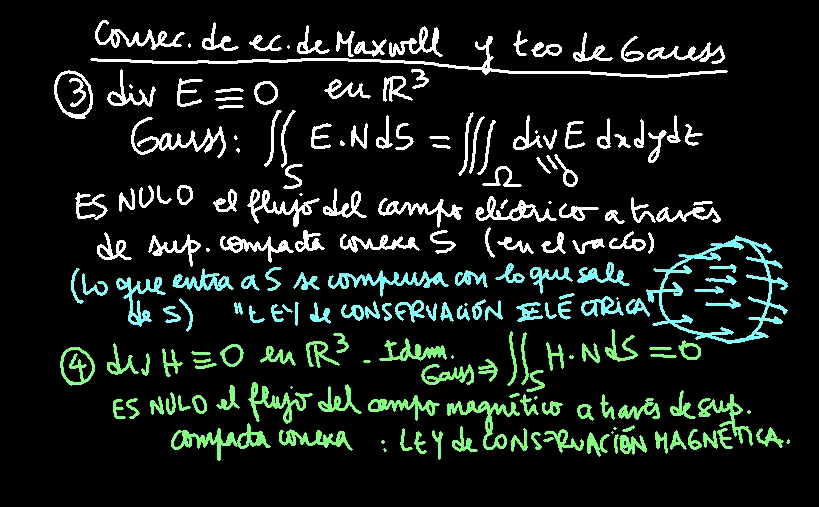 Consec. de ec. de Maxwell y teo de Gauss
③ div E ≡ 0 en ℝ³
Gauss: ∬_S E·N dS = ∭_Ω div E dxdydz
≡ 0
ES NULO el flujo del campo eléctrico a través
de sup. compacta conexa S (en el vacío)
(lo que entra a S se compensa con lo que sale
de S) "LEY de CONSERVACIÓN ELÉCTRICA"
④ div H ≡ 0 en ℝ³ - Idem. Gauss ⇒ ∬_S H·N dS = 0
ES NULO el flujo del campo magnético a través de sup.
compacta conexa : LEY de CONSERVACIÓN MAGNÉTICA.